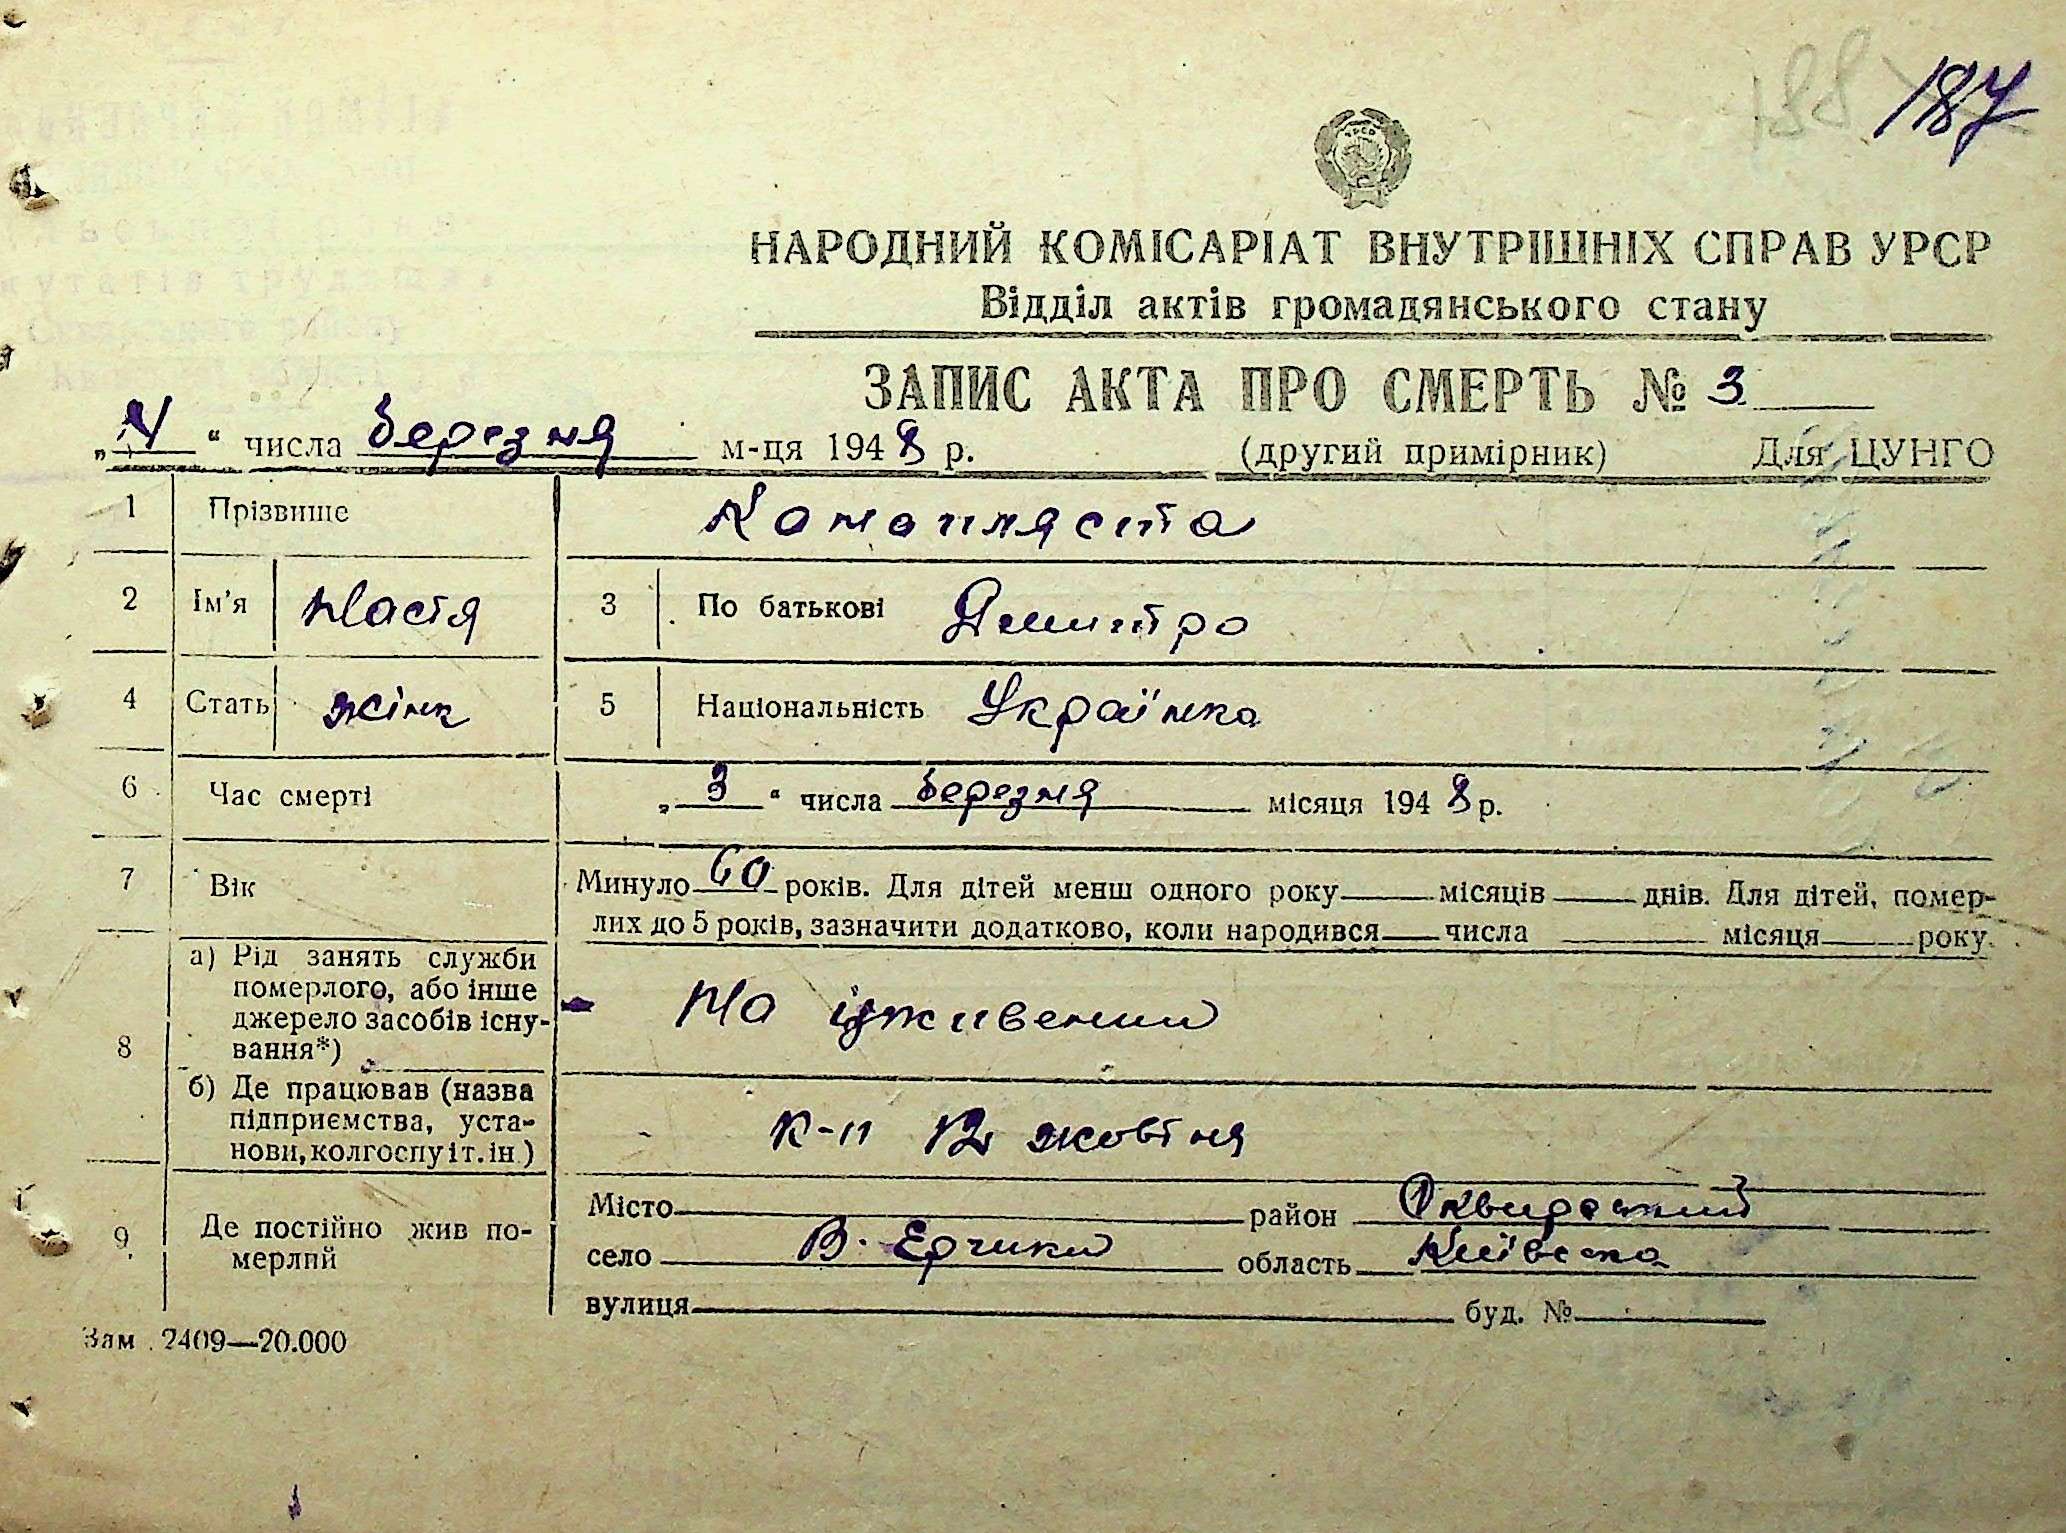 188 187
НАРОДНИЙ КОМІСАРІАТ ВНУТРІШНІХ СПРАВ УРСР
Відділ актів громадянського стану
ЗАПИС АКТА ПРО СМЕРТЬ № 3
„ “ числа березня м-ця 1948 р. (другий примірник) Для ЦУНГО
1 Прізвище Конопляста
2 Ім'я Настя 3 По батькові Дмитро
4 Стать жінк 5 Національність Українка
6 Час смерті „3“ числа березня місяця 1948 р.
7 Вік Минуло 60 років. Для дітей менш одного року місяців днів. Для дітей, помер-
лих до 5 років, зазначити додатково, коли народився числа місяця року
8 а) Рід занять служби
померлого, або інше
джерело засобів існу-
вання*) На іждивении
б) Де працював (назва
підприємства, уста-
нови, колгоспу і т. ін.) к-п 12 жовтня
9 Де постійно жив по-
мерлий
Місто район Сквирський
село В. Єрчики область Київська
вулиця буд. №
Зам. 2409—20.000